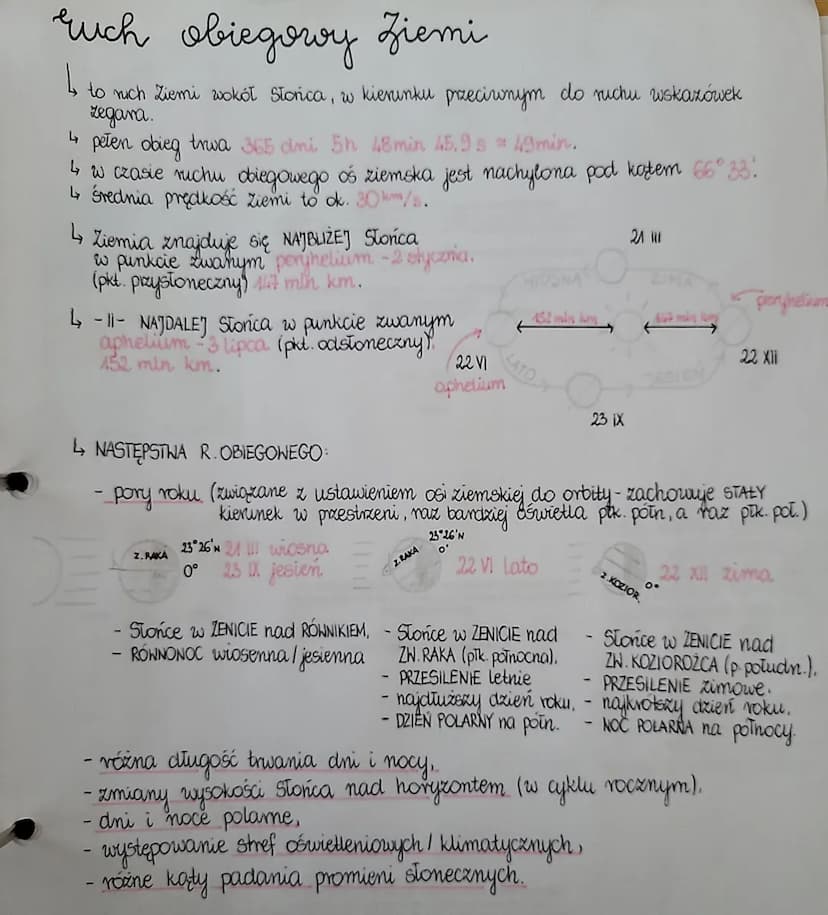 Ruch obiegowy Ziemi
↳ to ruch Ziemi wokół Słońca, w kierunku przeciwnym do ruchu wskazówek
zegara.
↳ pełen obieg trwa 365 dni 5h 48min 45,9 s ≈ 49min.
↳ w czasie ruchu obiegowego oś ziemska jest nachylona pod kątem 66°33'.
↳ Średnia prędkość Ziemi to ok. 30 km/s.
↳ Ziemia znajduje się NAJBLIŻEJ Słońca
w punkcie zwanym peryhelium - 2 stycznia.
(pkt. przysłoneczny) 147 mln km.
↳ -||- NAJDALEJ Słońca w punkcie zwanym
aphelium - 3 lipca (pkt. odsłoneczny).
152 mln km.
21 III
WIOSNA ZIMA
peryhelium
152 mln km 147 mln km
22 XII
22 VI
LATO JESIEŃ
aphelium
23 IX
↳ NASTĘPSTWA R. OBIEGOWEGO:
- pory roku (związane z ustawieniem osi ziemskiej do orbity - zachowuje STAŁY
kierunek w przestrzeni, raz bardziej oświetla płk. półn, a raz płk. poł.)
Z. RAKA 23°26'N 21 III wiosna
0° 23 IX jesień
Z. RAKA 23°26'N
0° 22 VI lato
Z. KOZIOR. 0° 22 XII zima
- Słońce w ZENICIE nad RÓWNIKIEM,
- RÓWNONOC wiosenna / jesienna
- Słońce w ZENICIE nad
ZW. RAKA (płk. północna),
- PRZESILENIE letnie
- najdłuższy dzień roku,
- DZIEŃ POLARNY na półn.
- Słońce w ZENICIE nad
ZW. KOZIOROŻCA (p. połudn.),
- PRZESILENIE zimowe,
- najkrótszy dzień roku,
- NOC POLARNA na północy.
- różna długość trwania dni i nocy,
- zmiany wysokości Słońca nad horyzontem (w cyklu rocznym),
- dni i noce polarne,
- występowanie stref oświetleniowych / klimatycznych,
- różne kąty padania promieni słonecznych.